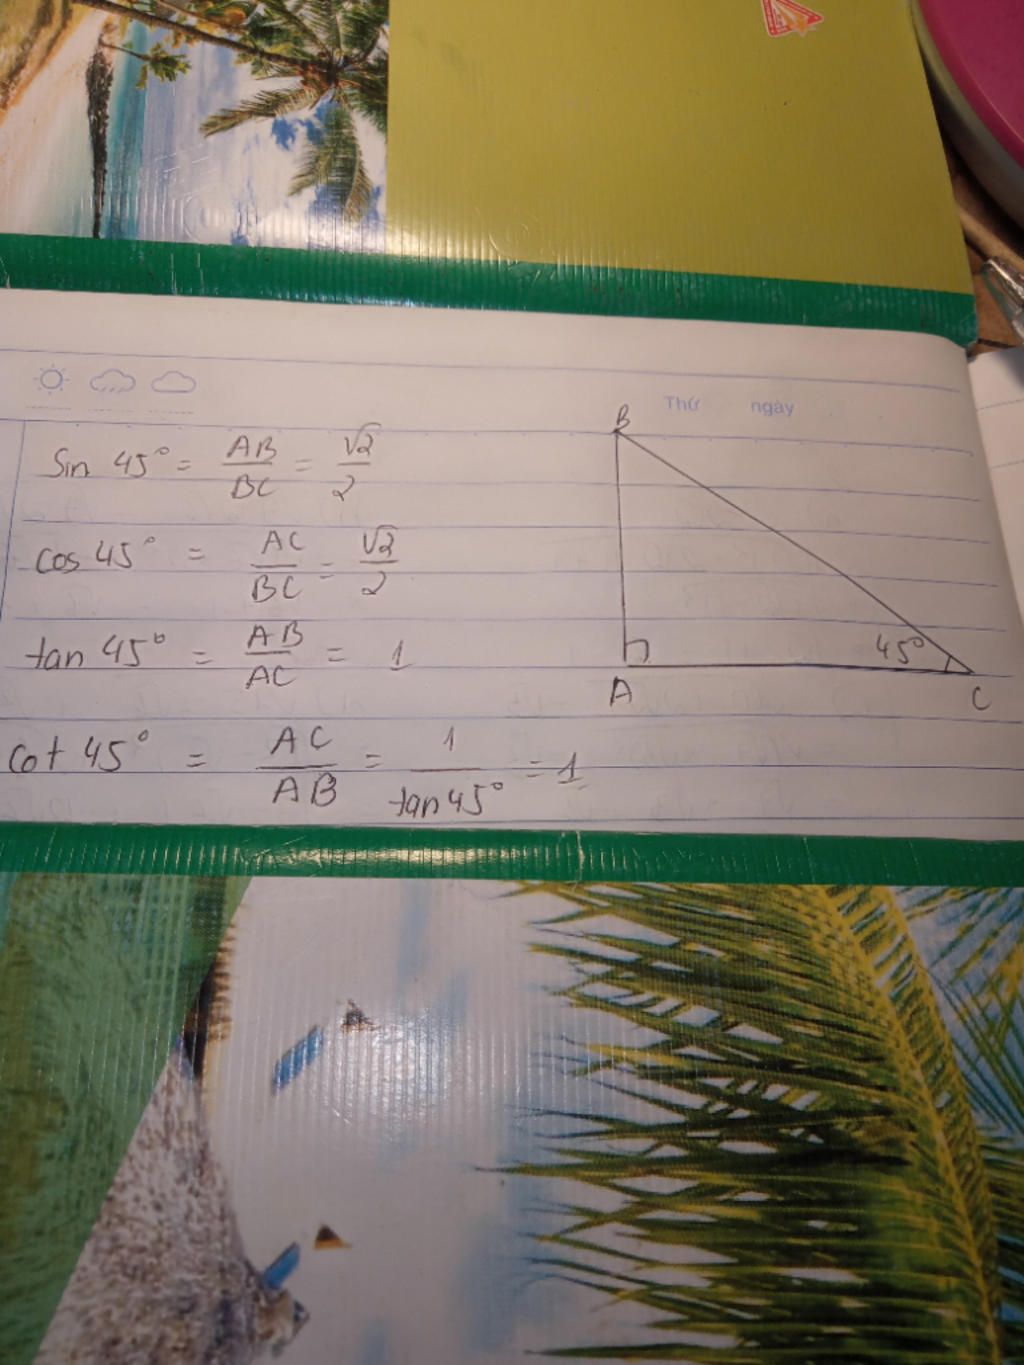 Thứ ngày
Sin 45° = AB/BC = √2/2
cos 45° = AC/BC = √2/2
tan 45° = AB/AC = 1
cot 45° = AC/AB = 1/tan 45° = 1
B
45°
A
C